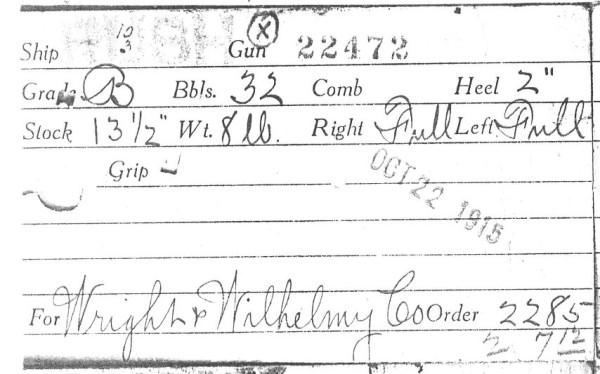 Ship 10/3 Gun (X) 22472
Grade B Bbls. 32 Comb Heel 2"
Stock 13 1/2" Wt. 8 lb. Right Full Left Full
Grip
OCT 22 1915
For Wright & Wilhelmy Co Order 2285
2 7 12